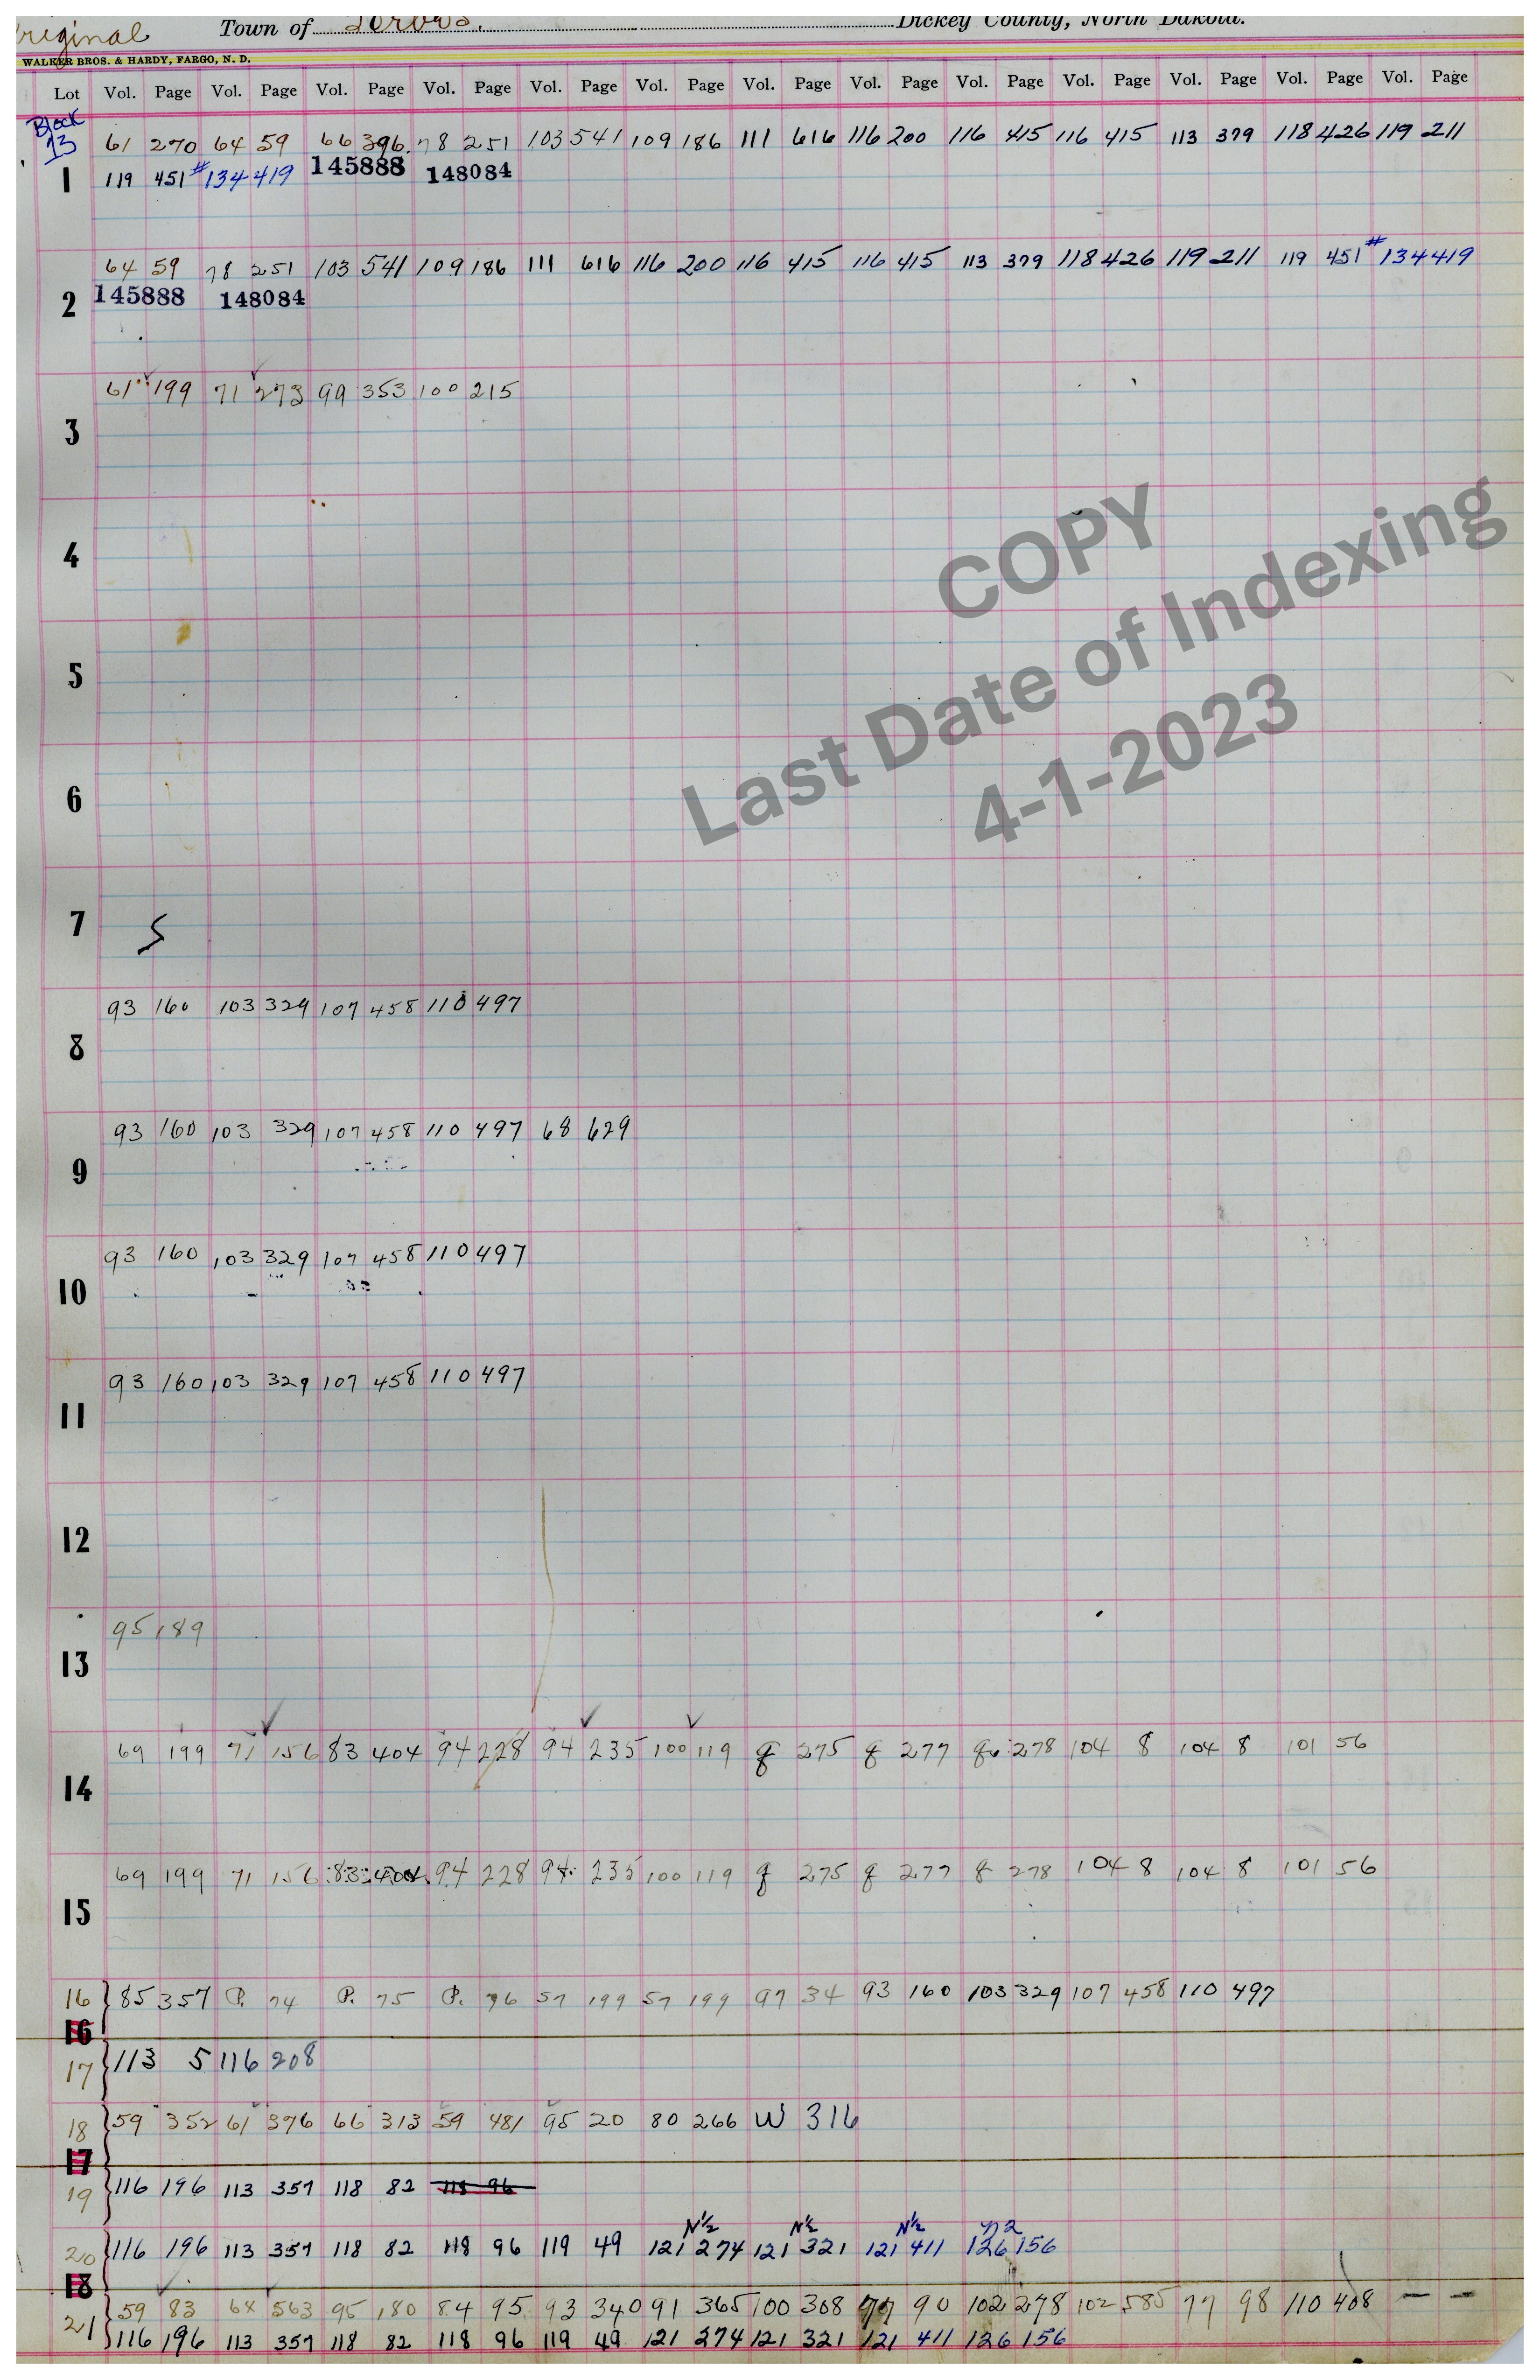 Original Town of Forbes, Dickey County, North Dakota.
WALKER BROS. & HARDY, FARGO, N. D.
Lot Vol. Page Vol. Page Vol. Page Vol. Page Vol. Page Vol. Page Vol. Page Vol. Page Vol. Page Vol. Page Vol. Page Vol. Page Vol. Page
Block
13 61 270 64 59 66 396 78 251 103 541 109 186 111 616 116 200 116 415 116 415 113 379 118 426 119 211
1 119 451 #134 419 145888 148084
64 59 78 251 103 541 109 186 111 616 116 200 116 415 116 415 113 379 118 426 119 211 119 451 #134 419
2 145888 148084
61 199 71 273 99 353 100 215
3
4
5
6
7
COPY
Last Date of Indexing
4-1-2023
93 160 103 329 107 458 110 497
8
93 160 103 329 107 458 110 497 68 629
9
93 160 103 329 107 458 110 497
10
93 160 103 329 107 458 110 497
11
12
95 189
13
69 199 71 156 83 404 94 228 94 235 100 119 275 277 278 104 8 104 8 101 56
14
69 199 71 156 83 404 94 228 94 235 100 119 275 277 278 104 8 104 8 101 56
15
16 85 357 P. 74 P. 75 P. 76 57 199 57 199 97 34 93 160 103 329 107 458 110 497
16
17 113 5 116 208
18 59 352 61 376 66 313 59 481 95 20 80 266 W 316
17
19 116 196 113 357 118 82 118 96
N½ N½ N½ n2
20 116 196 113 357 118 82 118 96 119 49 121 274 121 321 121 411 126 156
18
59 83 64 563 95 180 84 95 93 340 91 365 100 308 77 90 102 278 102 585 77 98 110 408 — —
21 116 196 113 357 118 82 118 96 119 49 121 274 121 321 121 411 126 156